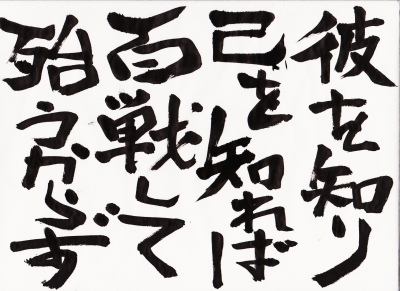 彼を知り
己を知れば
百戦して
殆うからず